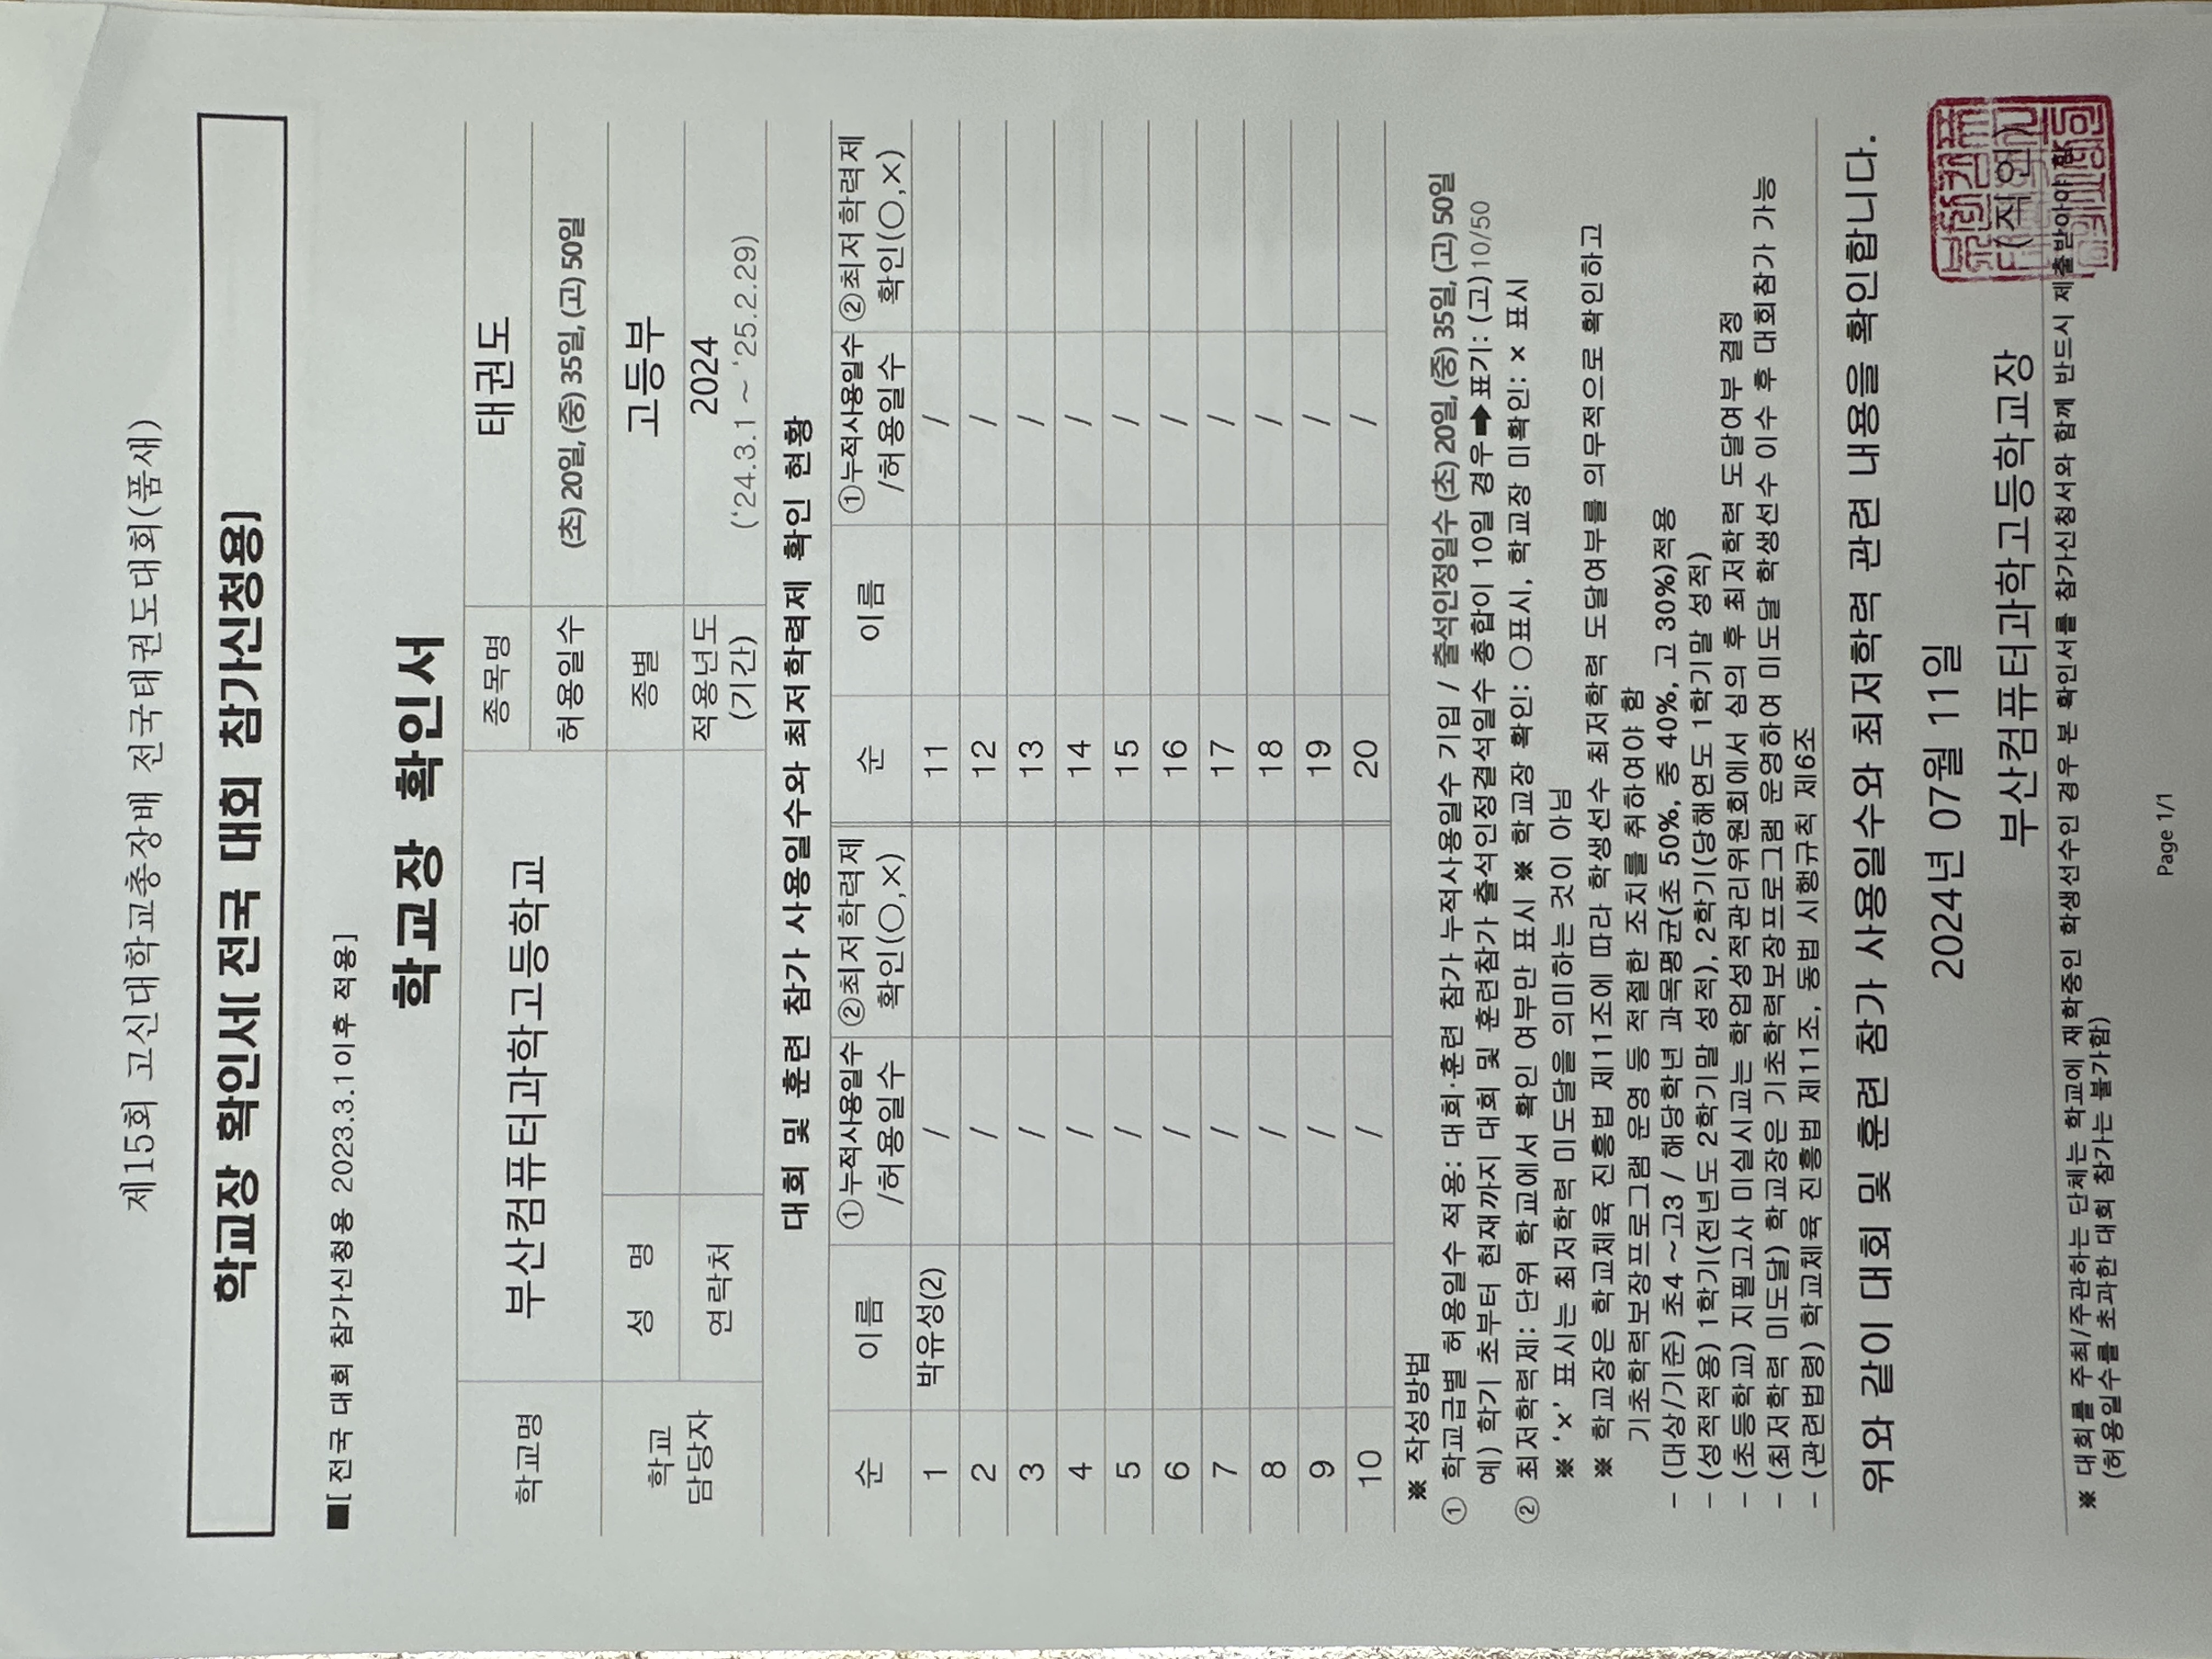 제15회 고신대학교총장배 전국태권도대회(품새)
학교장 확인서[ 전국 대회 참가신청용]
■[ 전국 대회 참가신청용 2023.3.1이후 적용]
학교장 확인서
학교명 부산컴퓨터과학고등학교 종목명 태권도
허용일수 (초) 20일, (중) 35일, (고) 50일
학교 담당자 성 명 종별 고등부
연락처 적용년도 (기간) 2024
(‘24.3.1 ~ ‘25.2.29)
대회 및 훈련 참가 사용일수와 최저학력제 확인 현황
순 이름 ①누적사용일수 /허용일수 ②최저학력제 확인(○,×) 순 이름 ①누적사용일수 /허용일수 ②최저학력제 확인(○,×)
1 박유성(2) / 11 /
2 / 12 /
3 / 13 /
4 / 14 /
5 / 15 /
6 / 16 /
7 / 17 /
8 / 18 /
9 / 19 /
10 / 20 /
※ 작성방법
① 학교급별 허용일수 적용: 대회·훈련 참가 누적사용일수 기입 / 출석인정일수 (초) 20일, (중) 35일, (고) 50일
예) 학기 초부터 현재까지 대회 및 훈련참가 출석인정결석일수 총합이 10일 경우➡표기: (고)10/50
② 최저학력제: 단위 학교에서 확인 여부만 표시 ※ 학교장 확인: ○표시, 학교장 미확인: × 표시
※ ‘×’ 표시는 최저학력 미도달을 의미하는 것이 아님
※ 학교장은 학교체육 진흥법 제11조에 따라 학생선수 최저학력 도달여부를 의무적으로 확인하고
기초학력보장프로그램 운영 등 적절한 조치를 취하여야 함
- (대상/기준) 초4 ~고3 / 해당학년 과목평균(초 50%, 중 40%, 고 30%)적용
- (성적적용) 1학기(전년도 2학기말 성적), 2학기(당해연도 1학기말 성적)
- (초등학교) 지필고사 미실시교는 학업성적관리위원회에서 심의 후 최저학력 도달여부 결정
- (최저학력 미도달) 학교장은 기초학력보장프로그램 운영하여 미도달 학생선수 이수 후 대회참가 가능
- (관련법령) 학교체육 진흥법 제11조, 동법 시행규칙 제6조
위와 같이 대회 및 훈련 참가 사용일수와 최저학력 관련 내용을 확인합니다.
2024년 07월 11일
부산컴퓨터과학고등학교장 (직인)
※ 대회를 주최/주관하는 단체는 학교에 재학중인 학생선수인 경우 본 확인서를 참가신청서와 함께 반드시 제출받아야 함
(허용일수를 초과한 대회 참가는 불가함)
Page 1/1